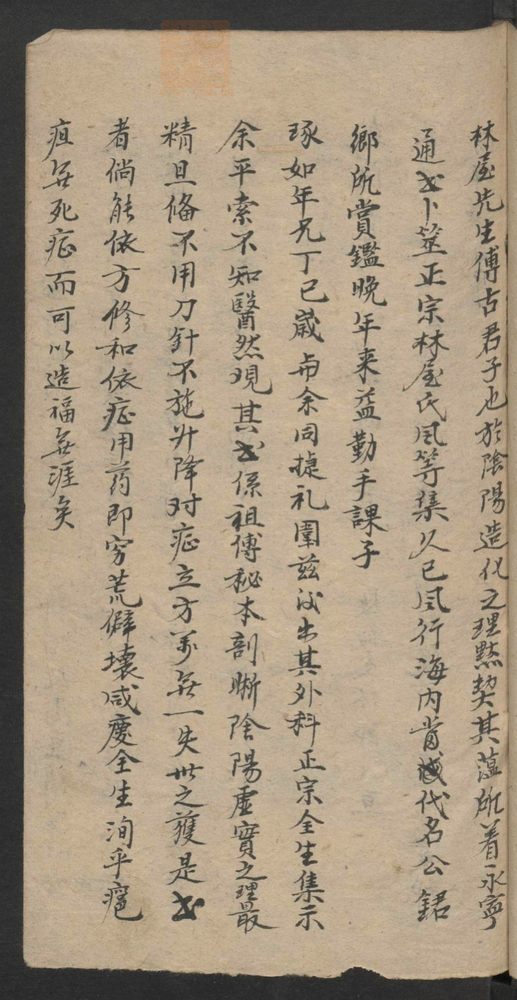 林屋先生傅古君子也於陰陽造化之理黙契其蘊所着永寧
通书卜筮正宗林屋氏风等集久已风行海内當代名公鉅
鄉所賞鑑晚年来益勤手課子
琢如年兄丁已嵗与余同捷礼圍兹以出其外科正宗全生集示
余平素不知醫然現其书係祖傅秘本剖晰陰陽虚實之理最
精且俻不用刀針不施升降对症立方万無一失世之獲是书
者倘能依方修和依症用药即穷荒僻壤咸慶全生洵乎瘡
疽無死症而可以造福無涯矣